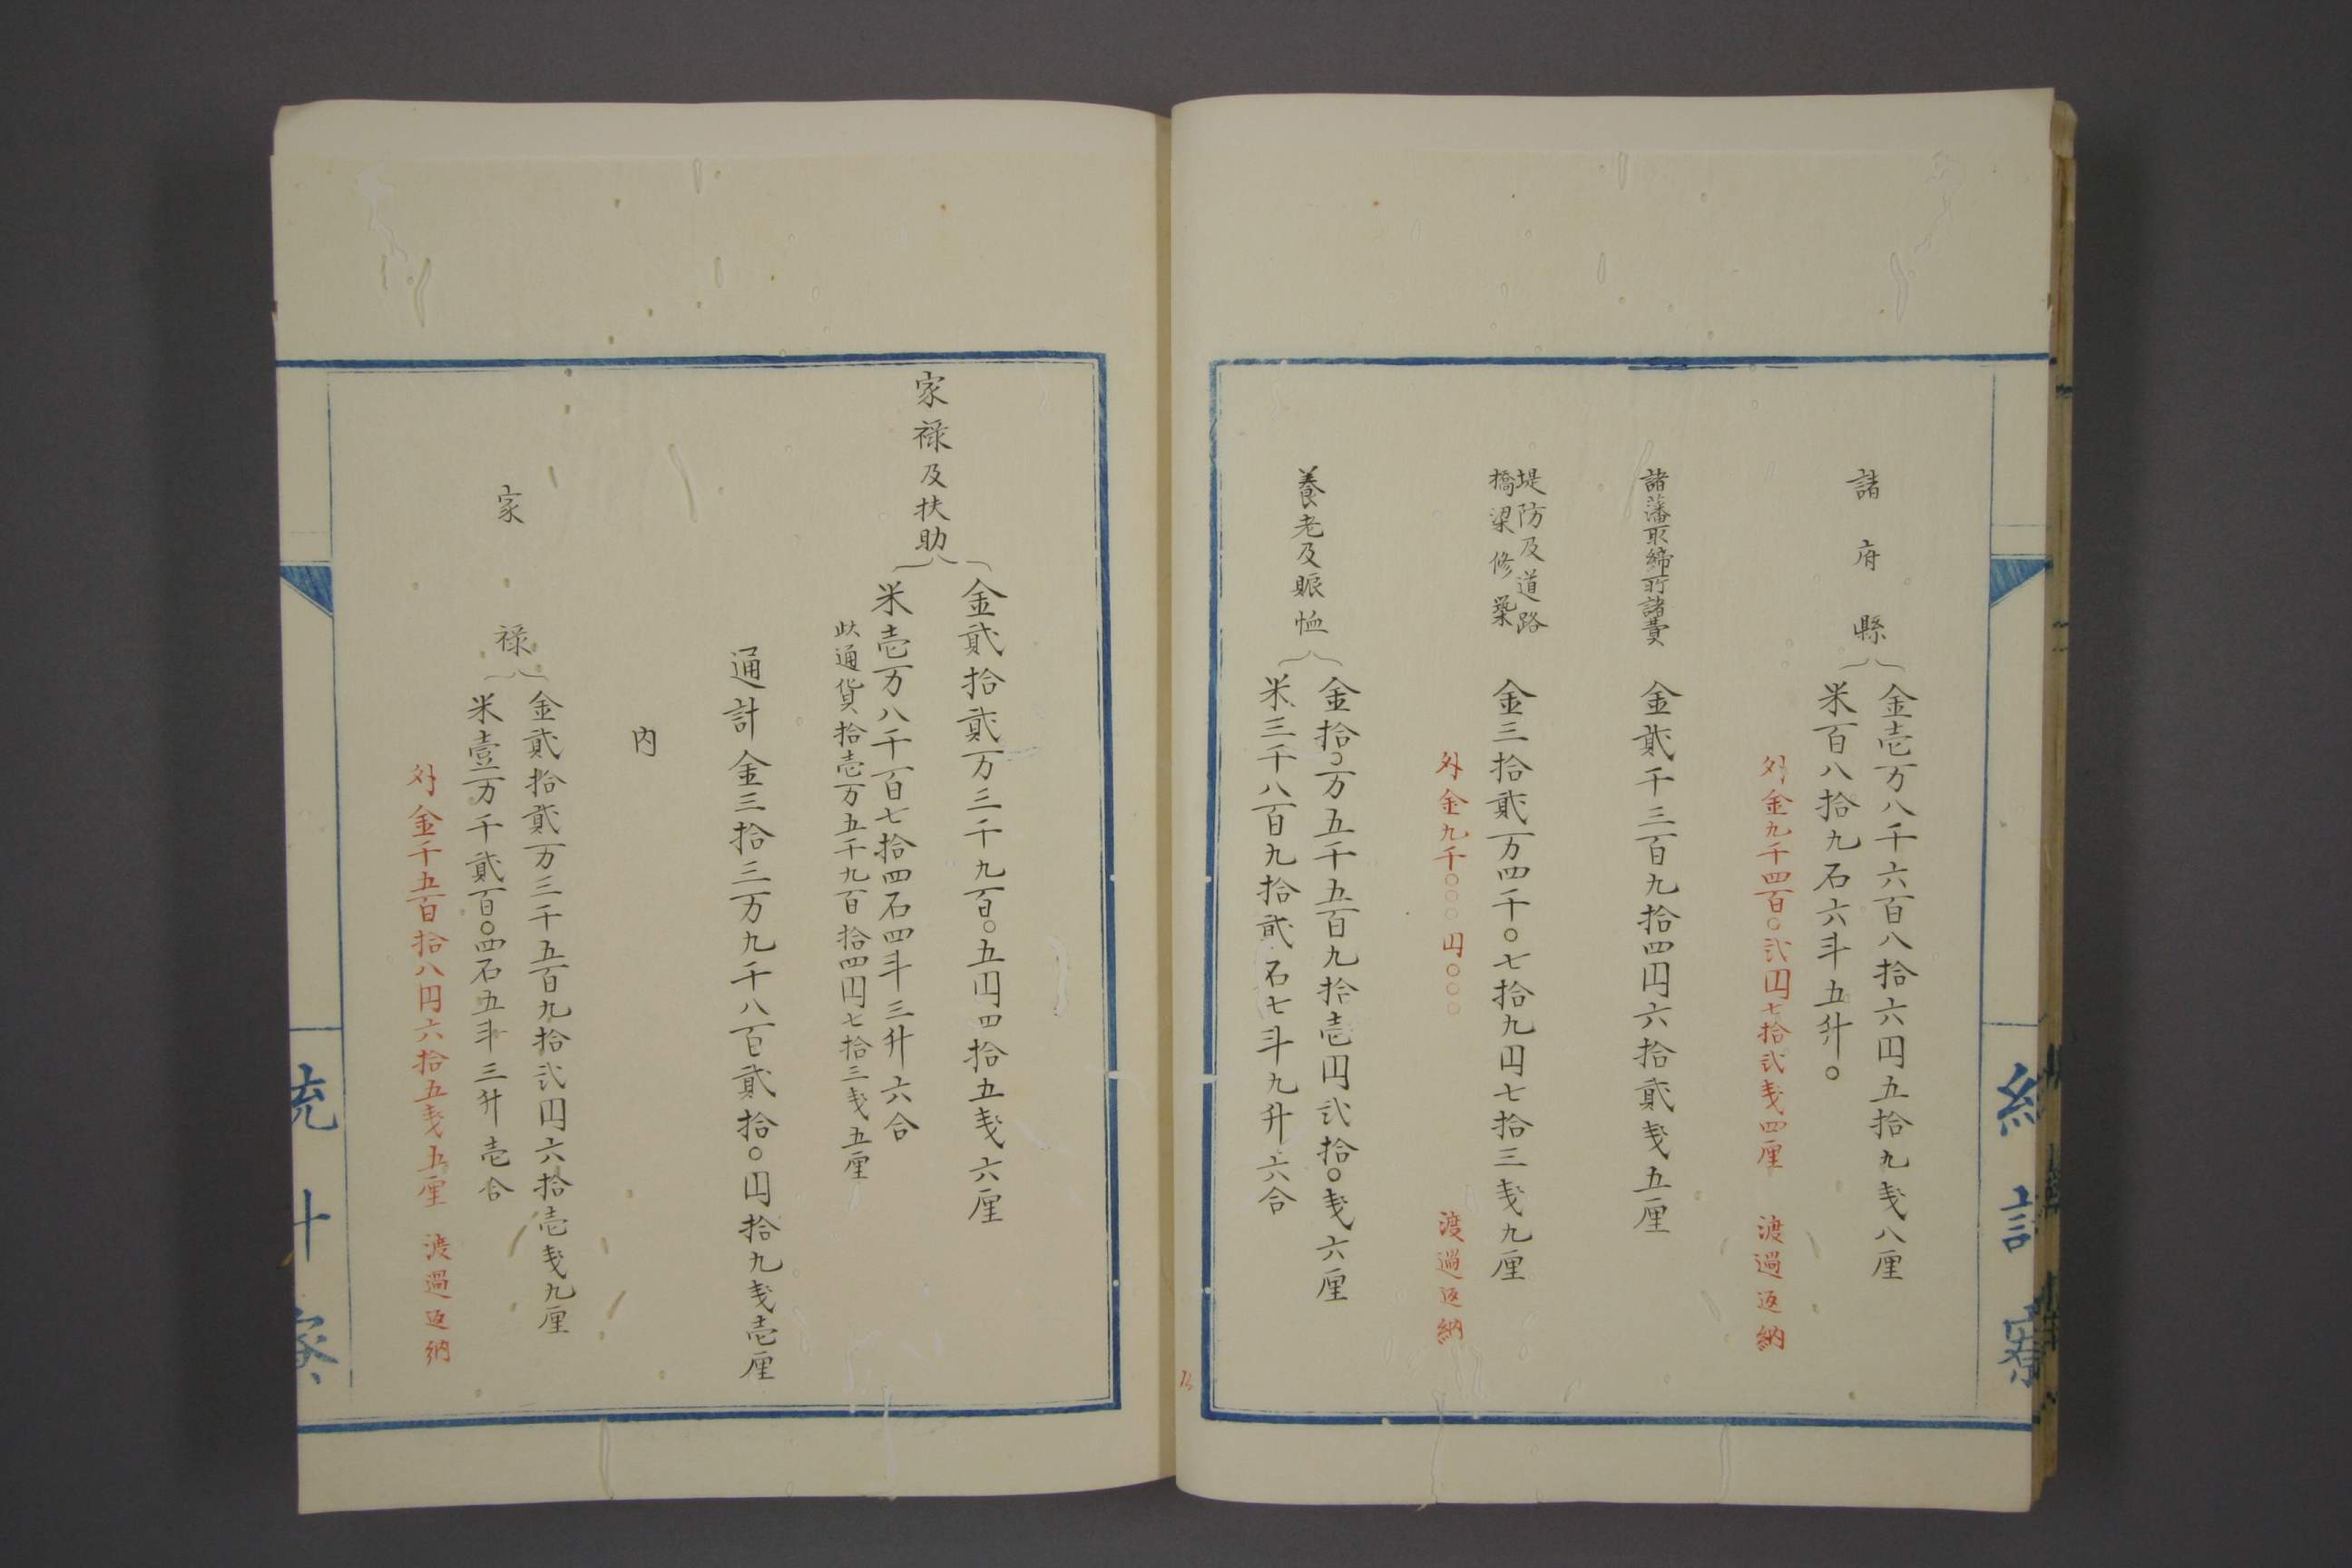 諸府縣
金壱万八千六百八拾六円五拾九戔八厘
米百八拾九石六斗五升〇
外金九千四百〇弐円七拾弐戔四厘　渡過返納
諸藩取締所諸費　金貳千三百九拾四円六拾貳戔五厘
堤防及道路
橋梁修築
金三拾貳万四千〇七拾九円七拾三戔九厘
外金九千〇〇〇円〇〇〇　渡過返納
養老及賑恤
金拾〇万五千五百九拾壱円弐拾〇戔六厘
米三千八百九拾貳石七斗九升六合
家禄及扶助
金貳拾貳万三千九百〇五円四拾五戔六厘
米壱万八千百七拾四石四斗三升六合
此通貨拾壱万五千九百拾四円七拾三戔五厘
通計金三拾三万九千八百貳拾〇円拾九戔壱厘
内
家禄
金貳拾貳万三千五百九拾弐円六拾壱戔九厘
米壹万千貳百〇四石五斗三升壱合
外金千五百拾八円六拾五戔五厘　渡過返納